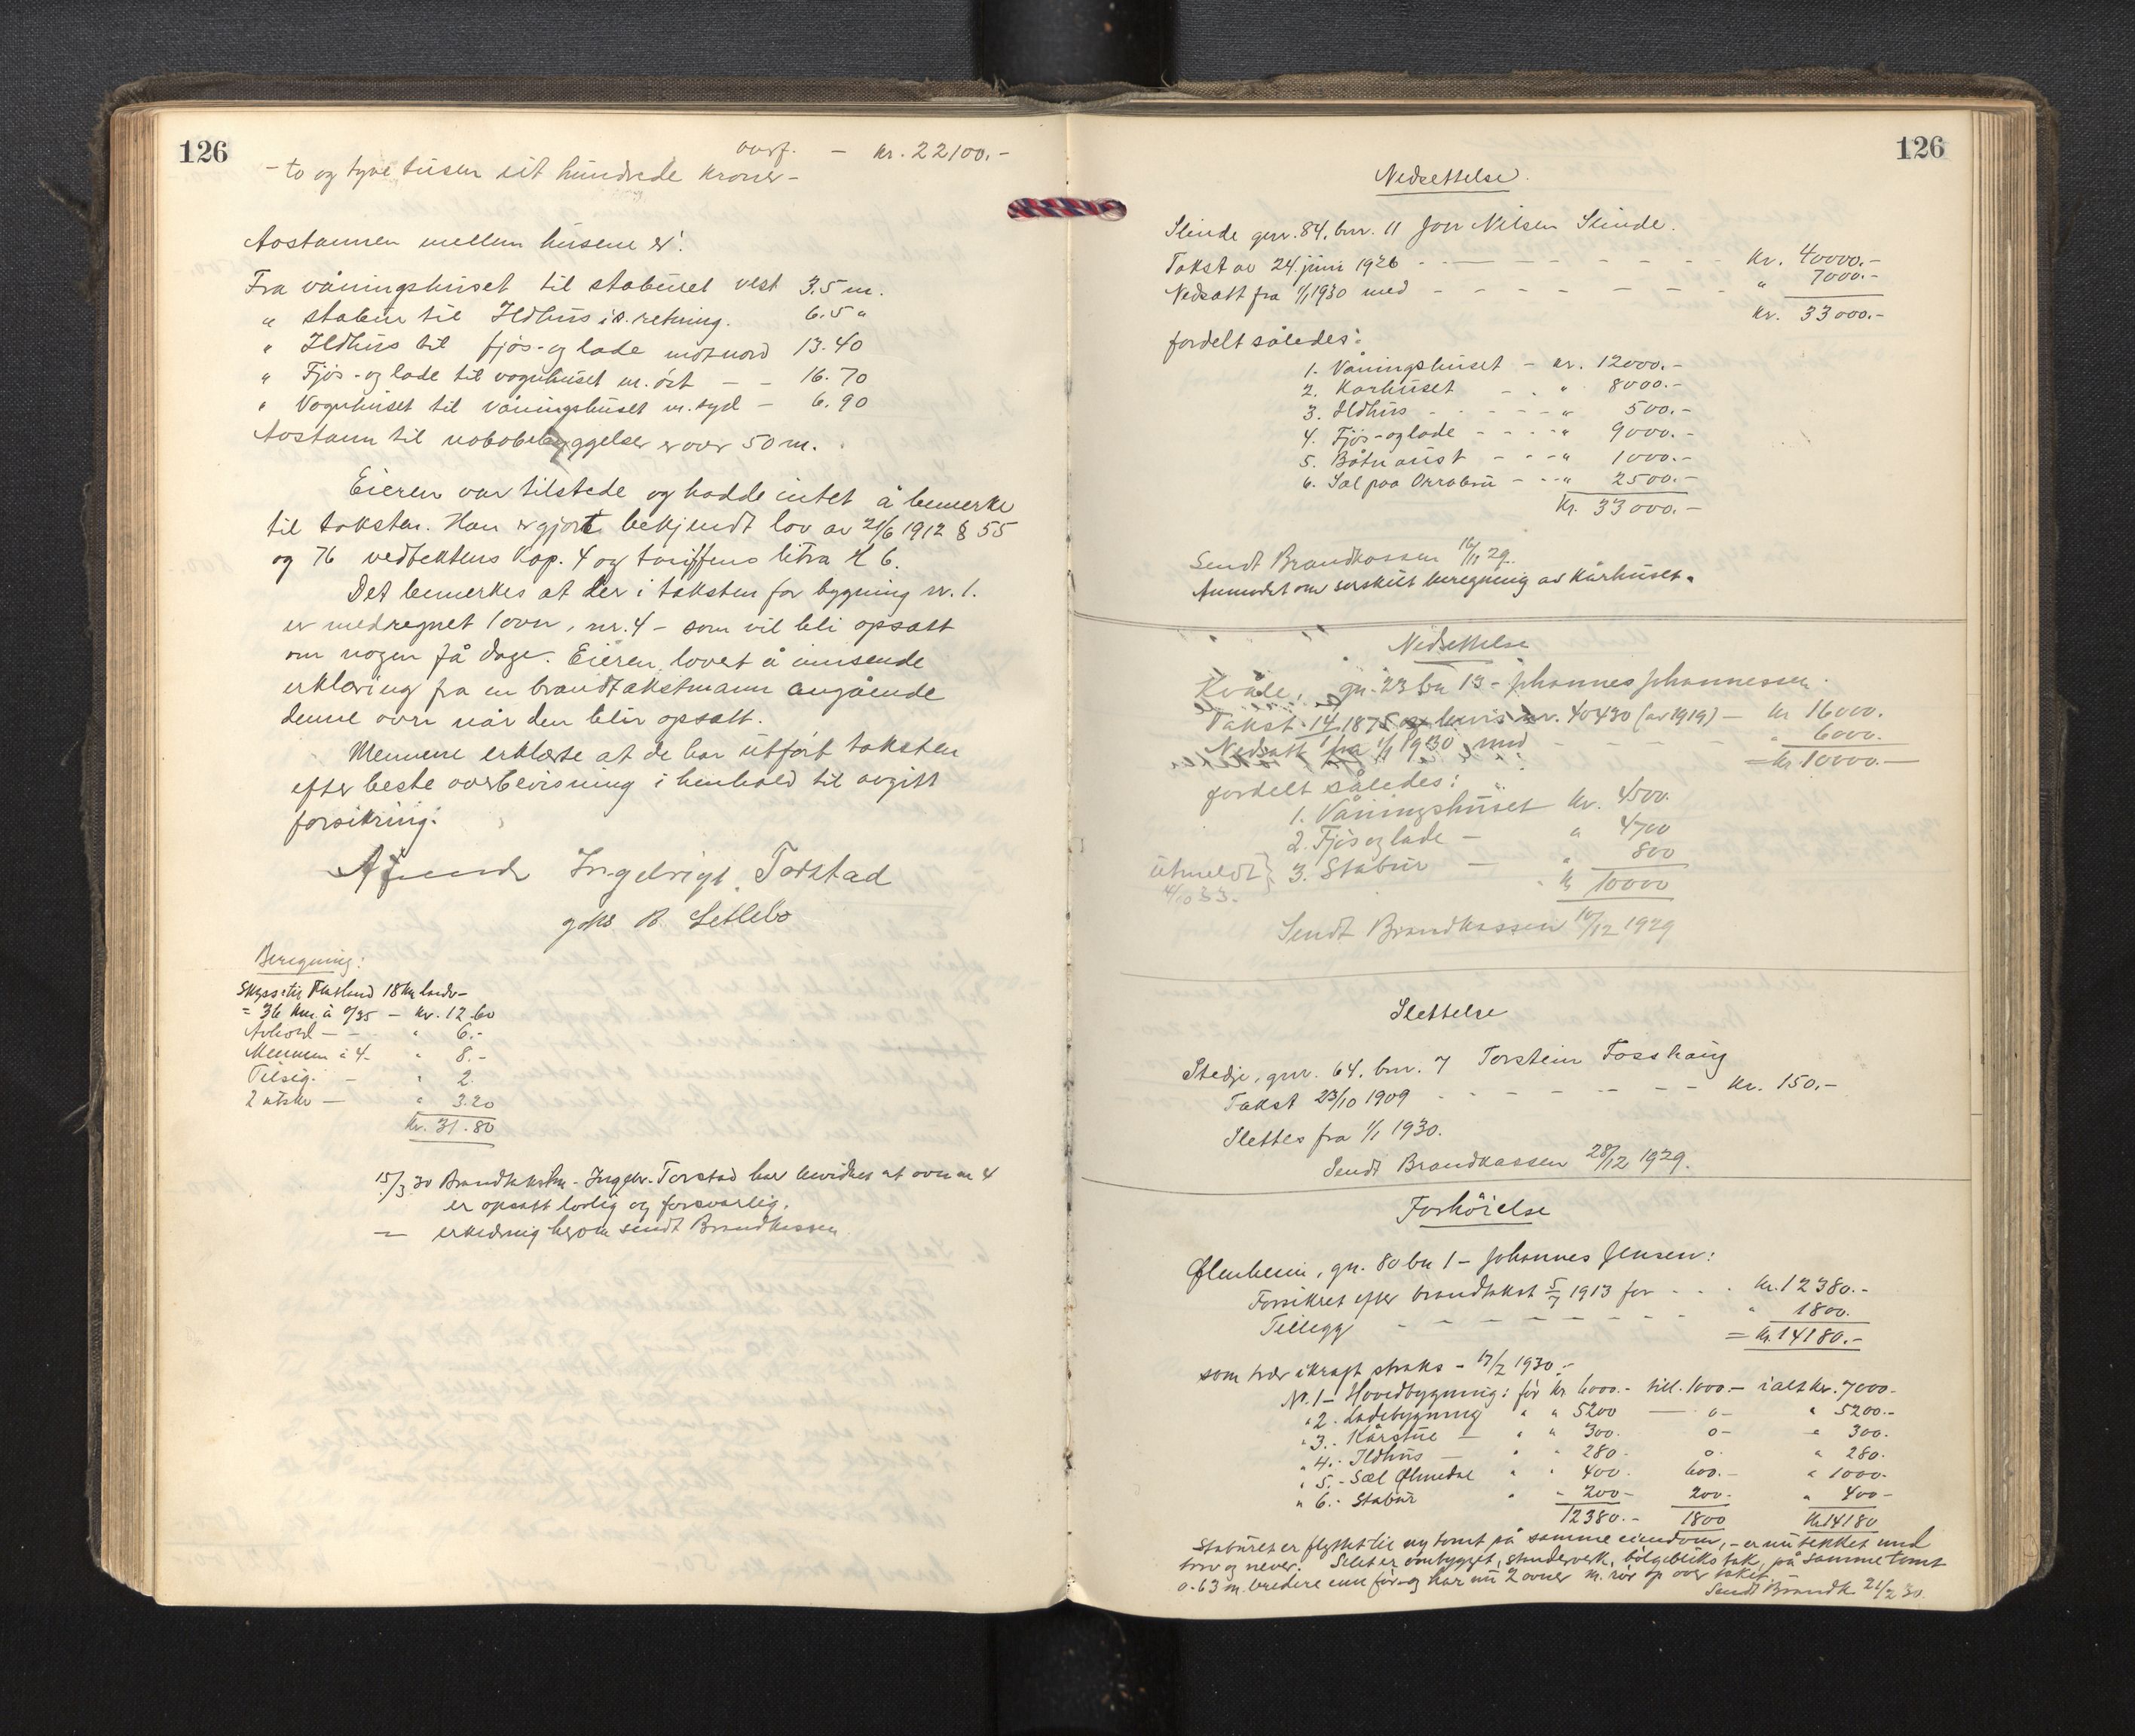 126
overf. - kr. 22100.-
- to og tyve tusen eit hundrede kroner -
Avstannen mellem husene er:
Fra våningshuset til stabburet vest 3.5 m.
" stabur til Ildhus i s. retning. 6.5 "
" Ildhus til fjøs- og lade mot nord 13.40
" Fjøs- og lade til vognhuset m. øst - - 16.70
" Vognhuset til våningshuset m. syd - 6.90
Avstann til nabobebyggelse er over 50 m.
Eieren var tilstede og hadde intet å bemerke
til taksten. Han er gjort bekjendt lov av 21/6 1912 § 55
og 76 vedtektens kap. 4 og tariffens litra H 6.
Det bemerkes at der i taksten for bygning nr. 1.
er medregnet 1 ovn, nr. 4 - som vil bli opsatt
om nogen få dage. Eieren lovet å innsende
erklæring fra en brandtakstmann angående
denne ovn når den blir opsatt.
Mennene erklærte at de har utført taksten
efter beste overbevisning i henhold til avgitt
forsikring.
Ingebrigt Torstad
B. Setlebø
Beregning:
Skyss til 18 km landv-
= 36 km. à 0/35 - kr. 12.60
Avhold - - " 6.-
Mennen à 4- " 8.-
Tilsig. - " 2.
2 utskr - " 3.20
kr. 31.80
15/3 30 Brandtakstm. Ingebr. Torstad har bevidnet at ovn nr 4
er opsatt lovlig og forsvarlig.
- erklæring herom sendt Brandkassen
126
Nedsettelse.
Slinde gnr. 84, bnr. 11 Jon Nilsen Slinde.
Takst av 24. juni 1926 - - - - - - - kr. 40000.-
Nedsatt fra 1/1 1930 med - - - - - - - " 7000.-
kr. 33000.-
fordelt således:
1. Våningshuset - kr. 12000.-
2. Kårhuset - - " 8000.-
3. Ildhus - - - - - " 500.-
4. Fjøs- og lade - - - - " 9000.-
5. Båtnaust - - - " 1000.-
6. Sæl paa Orrabru - - - " 2500.-
kr. 33000.-
Sendt Brandkassen 16/11 29.
Anmodet om særskilt beregning av Kårhuset.
Nedsettelse
Kvåle, gn. 23 bn 13 - Johannes Johannessen.
Takst 14/1 1875 bevis nr. 40430 (av 1919) - kr 16000.
Nedsatt fra 1/1 1930 med - - - - - " 6000.
= kr 10000.-
fordelt således:
1. Våningshuset kr. 4500.
2. Fjøs og lade - " 4700
3. Stabur - " 800
kr 10000
Utmeldt
4/10 33.
Sendt Brandkassen 10/12 1929
Slettelse
Stedje, gnr. 64. bnr. 7 Torstein Fosshaug
Takst 23/10 1909 - - - - - - - kr. 150.-
Slettes fra 1/1 1930.
Sendt Brandkassen 28/12 1929.
Forhøielse
Ølmheim, gn. 80 bn 1 - Johannes Jensen:
Forsikret efter brandtakst 5/7 1913 for - - . kr. 12380.-
Tillegg - - - - - - - - " 1800.
= kr. 14180.-
som trær ikraft straks - 17/2 1930 :-
Nr. 1 - Hovedbygning: før kr 6000.- till. 1000.- i alt kr. 7000-
" 2. Ladebygning " " 5200 - 0- " 5200.-
" 3. Kårstue - " " 300. 0- " 300.
" 4. Ildhus - " " 280- 0. " 280.
" 5. Sæl Ølmedal " " 400. 600.- " 1000-
" 6. Stabur " " 200- 200- " 400-
12380.- 1800 kr 14180
Staburet er flyttet til ny tomt på samme eiendom, - er nu tekket med
torv og never. Selet er ombygget, stenderverk, bølgebliks tak, på samme tomt
0.63 m. bredere enn før og har nu 2 ovner m. rør op over taket.
Sendt Brandk. 21/2 30.